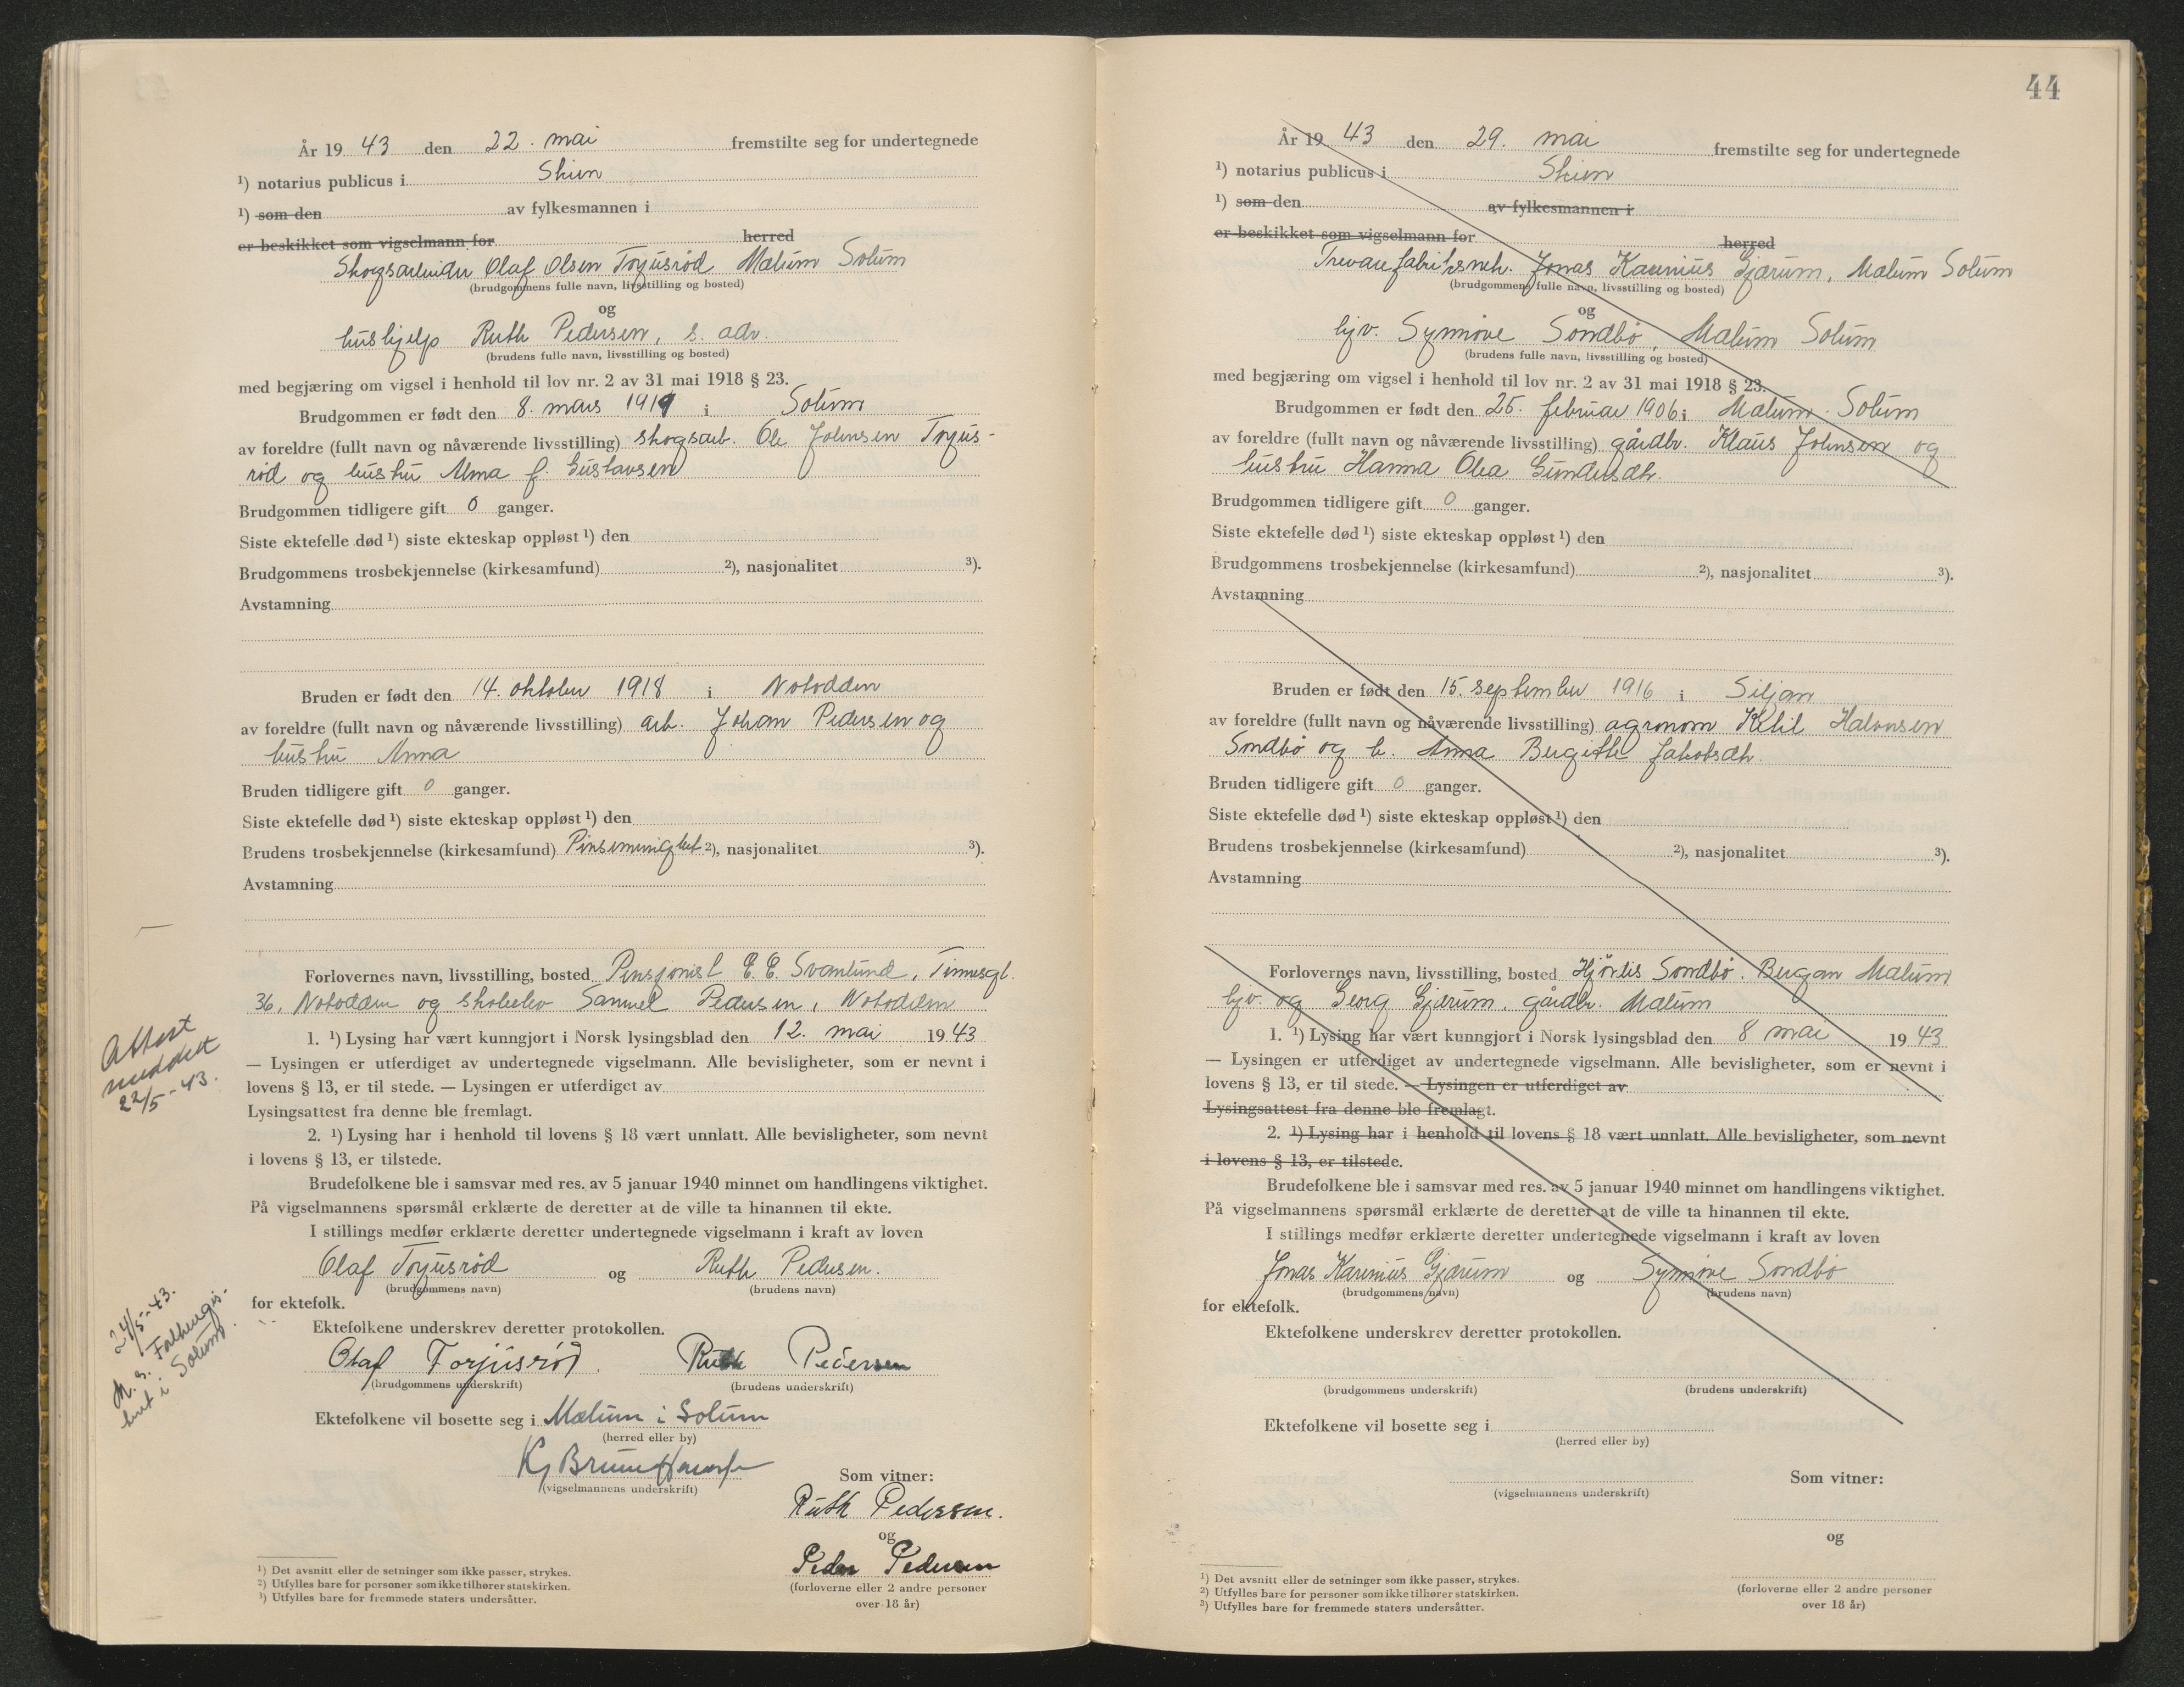 År 19 43 den 22. mai fremstilte seg for undertegnede
¹) notarius publicus i Skien
¹) som den av fylkesmannen i
er beskikket som vigselmann for herred
Skogsarbeider Olaf Olsen Torjusrød Mælum Solum
(brudgommens fulle navn, livsstilling og bosted)
og
hushjelp Ruth Pedersen, s. adr.
(brudens fulle navn, livsstilling og bosted)
med begjæring om vigsel i henhold til lov nr. 2 av 31 mai 1918 § 23.
Brudgommen er født den 8. mars 1919 i Solum
av foreldre (fullt navn og nåværende livsstilling) skogsarb. Ole Johnsen Torjus-
rød og hustru Alma f. Gustavsen
Brudgommen tidligere gift 0 ganger.
Siste ektefelle død ¹) siste ekteskap oppløst ¹) den
Brudgommens trosbekjennelse (kirkesamfund) ²), nasjonalitet ³).
Avstamning
Bruden er født den 14. oktober 1918 i Notodden
av foreldre (fullt navn og nåværende livsstilling) arb. Johan Pedersen og
hustru Anna
Bruden tidligere gift 0 ganger.
Siste ektefelle død ¹) siste ekteskap oppløst ¹) den
Brudens trosbekjennelse (kirkesamfund) Pinsemenighet ²), nasjonalitet ³).
Avstamning
Forlovernes navn, livsstilling, bosted Pensjonist E. E. Svanlund, Tinnesgt.
36, Notodden og skoleelev Samuel Pedersen, Notodden
1. ¹) Lysing har vært kunngjort i Norsk lysingsblad den 12. mai 19 43
— Lysingen er utferdiget av undertegnede vigselmann. Alle bevisligheter, som er nevnt i
lovens § 13, er til stede. — Lysingen er utferdiget av
Lysingsattest fra denne ble fremlagt.
2. ¹) Lysing har i henhold til lovens § 18 vært unnlatt. Alle bevisligheter, som nevnt
i lovens § 13, er tilstede.
Brudefolkene ble i samsvar med res. av 5 januar 1940 minnet om handlingens viktighet.
På vigselmannens spørsmål erklærte de deretter at de ville ta hinannen til ekte.
I stillings medfør erklærte deretter undertegnede vigselmann i kraft av loven
Olaf Torjusrød og Ruth Pedersen.
(brudgommens navn) (brudens navn)
for ektefolk.
Ektefolkene underskrev deretter protokollen.
Olaf Torjusrød. Ruth Pedersen
(brudgommens underskrift) (brudens underskrift)
Ektefolkene vil bosette seg i Mælum i Solum
(herred eller by)
(vigselmannens underskrift)
Som vitner:
Ruth Pedersen.
og
Peder Pedersen
(forloverne eller 2 andre personer
over 18 år)
¹) Det avsnitt eller de setninger som ikke passer, strykes.
²) Utfylles bare for personer som ikke tilhører statskirken.
³) Utfylles bare for fremmede staters undersåtter.
Attest
meddelt
22/5-43.
24/5-43.
M. s. Folkregis-
teret i Solum.
44
År 19 43 den 29. mai fremstilte seg for undertegnede
¹) notarius publicus i Skien
¹) som den av fylkesmannen i
er beskikket som vigselmann for herred
Trevarefabrikkneh. Jonas Karenius Gjærum, Mælum Solum
(brudgommens fulle navn, livsstilling og bosted)
og
hjv. Synnøve Sondbø, Mælum Solum
(brudens fulle navn, livsstilling og bosted)
med begjæring om vigsel i henhold til lov nr. 2 av 31 mai 1918 § 23.
Brudgommen er født den 25. februar 1906 i Mælum. Solum
av foreldre (fullt navn og nåværende livsstilling) gårdbr. Klaus Johnsen og
hustru Hanna Olea Gundersdtr.
Brudgommen tidligere gift 0 ganger.
Siste ektefelle død ¹) siste ekteskap oppløst ¹) den
Brudgommens trosbekjennelse (kirkesamfund) ²), nasjonalitet ³).
Avstamning
Bruden er født den 15. september 1916 i Siljan
av foreldre (fullt navn og nåværende livsstilling) agronom Ketil Halvorsen
Sondbø og h. Anna Bergithe Jakobsdtr.
Bruden tidligere gift 0 ganger.
Siste ektefelle død ¹) siste ekteskap oppløst ¹) den
Brudens trosbekjennelse (kirkesamfund) ²), nasjonalitet ³).
Avstamning
Forlovernes navn, livsstilling, bosted Hjørtis Sondbø. Bergan Mælum
hjv. og Georg Gjærum, gårdbr. Mælum
1. ¹) Lysing har vært kunngjort i Norsk lysingsblad den 8 mai 19 43
— Lysingen er utferdiget av undertegnede vigselmann. Alle bevisligheter, som er nevnt i
lovens § 13, er til stede. — Lysingen er utferdiget av
Lysingsattest fra denne ble fremlagt.
2. ¹) Lysing har i henhold til lovens § 18 vært unnlatt. Alle bevisligheter, som nevnt
i lovens § 13, er tilstede.
Brudefolkene ble i samsvar med res. av 5 januar 1940 minnet om handlingens viktighet.
På vigselmannens spørsmål erklærte de deretter at de ville ta hinannen til ekte.
I stillings medfør erklærte deretter undertegnede vigselmann i kraft av loven
Jonas Karenius Gjærum og Synnøve Sondbø
(brudgommens navn) (brudens navn)
for ektefolk.
Ektefolkene underskrev deretter protokollen.
(brudgommens underskrift) (brudens underskrift)
Ektefolkene vil bosette seg i
(herred eller by)
(vigselmannens underskrift)
Som vitner:
og
(forloverne eller 2 andre personer
over 18 år)
¹) Det avsnitt eller de setninger som ikke passer, strykes.
²) Utfylles bare for personer som ikke tilhører statskirken.
³) Utfylles bare for fremmede staters undersåtter.